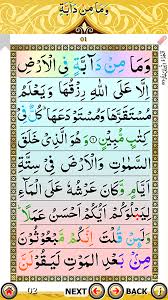 وَمَا مِنْ دَآبَّةٍ
01
وَمَا مِنْ دَآبَّةٍ فِي الْاَرْضِ
اِلَّا عَلَى اللّٰهِ رِزْقُهَا وَيَعْلَمُ
مُسْتَقَرَّهَا وَمُسْتَوْدَعَهَا ؕ كُلٌّ فِيْ
كِتٰبٍ مُّبِيْنٍ وَهُوَ الَّذِيْ خَلَقَ
السَّمٰوٰتِ وَالْاَرْضَ فِيْ سِتَّةِ
اَيَّامٍ وَّكَانَ عَرْشُهٗ عَلَى الْمَآءِ
لِيَبْلُوَكُمْ اَيُّكُمْ اَحْسَنُ عَمَلًا ؕ
وَلَئِنْ قُلْتَ اِنَّكُمْ مَّبْعُوْثُوْنَ
مِنْۢ بَعْدِ الْمَوْتِ لَيَقُوْلَنَّ الَّذِيْنَ
02 NEXT BACK